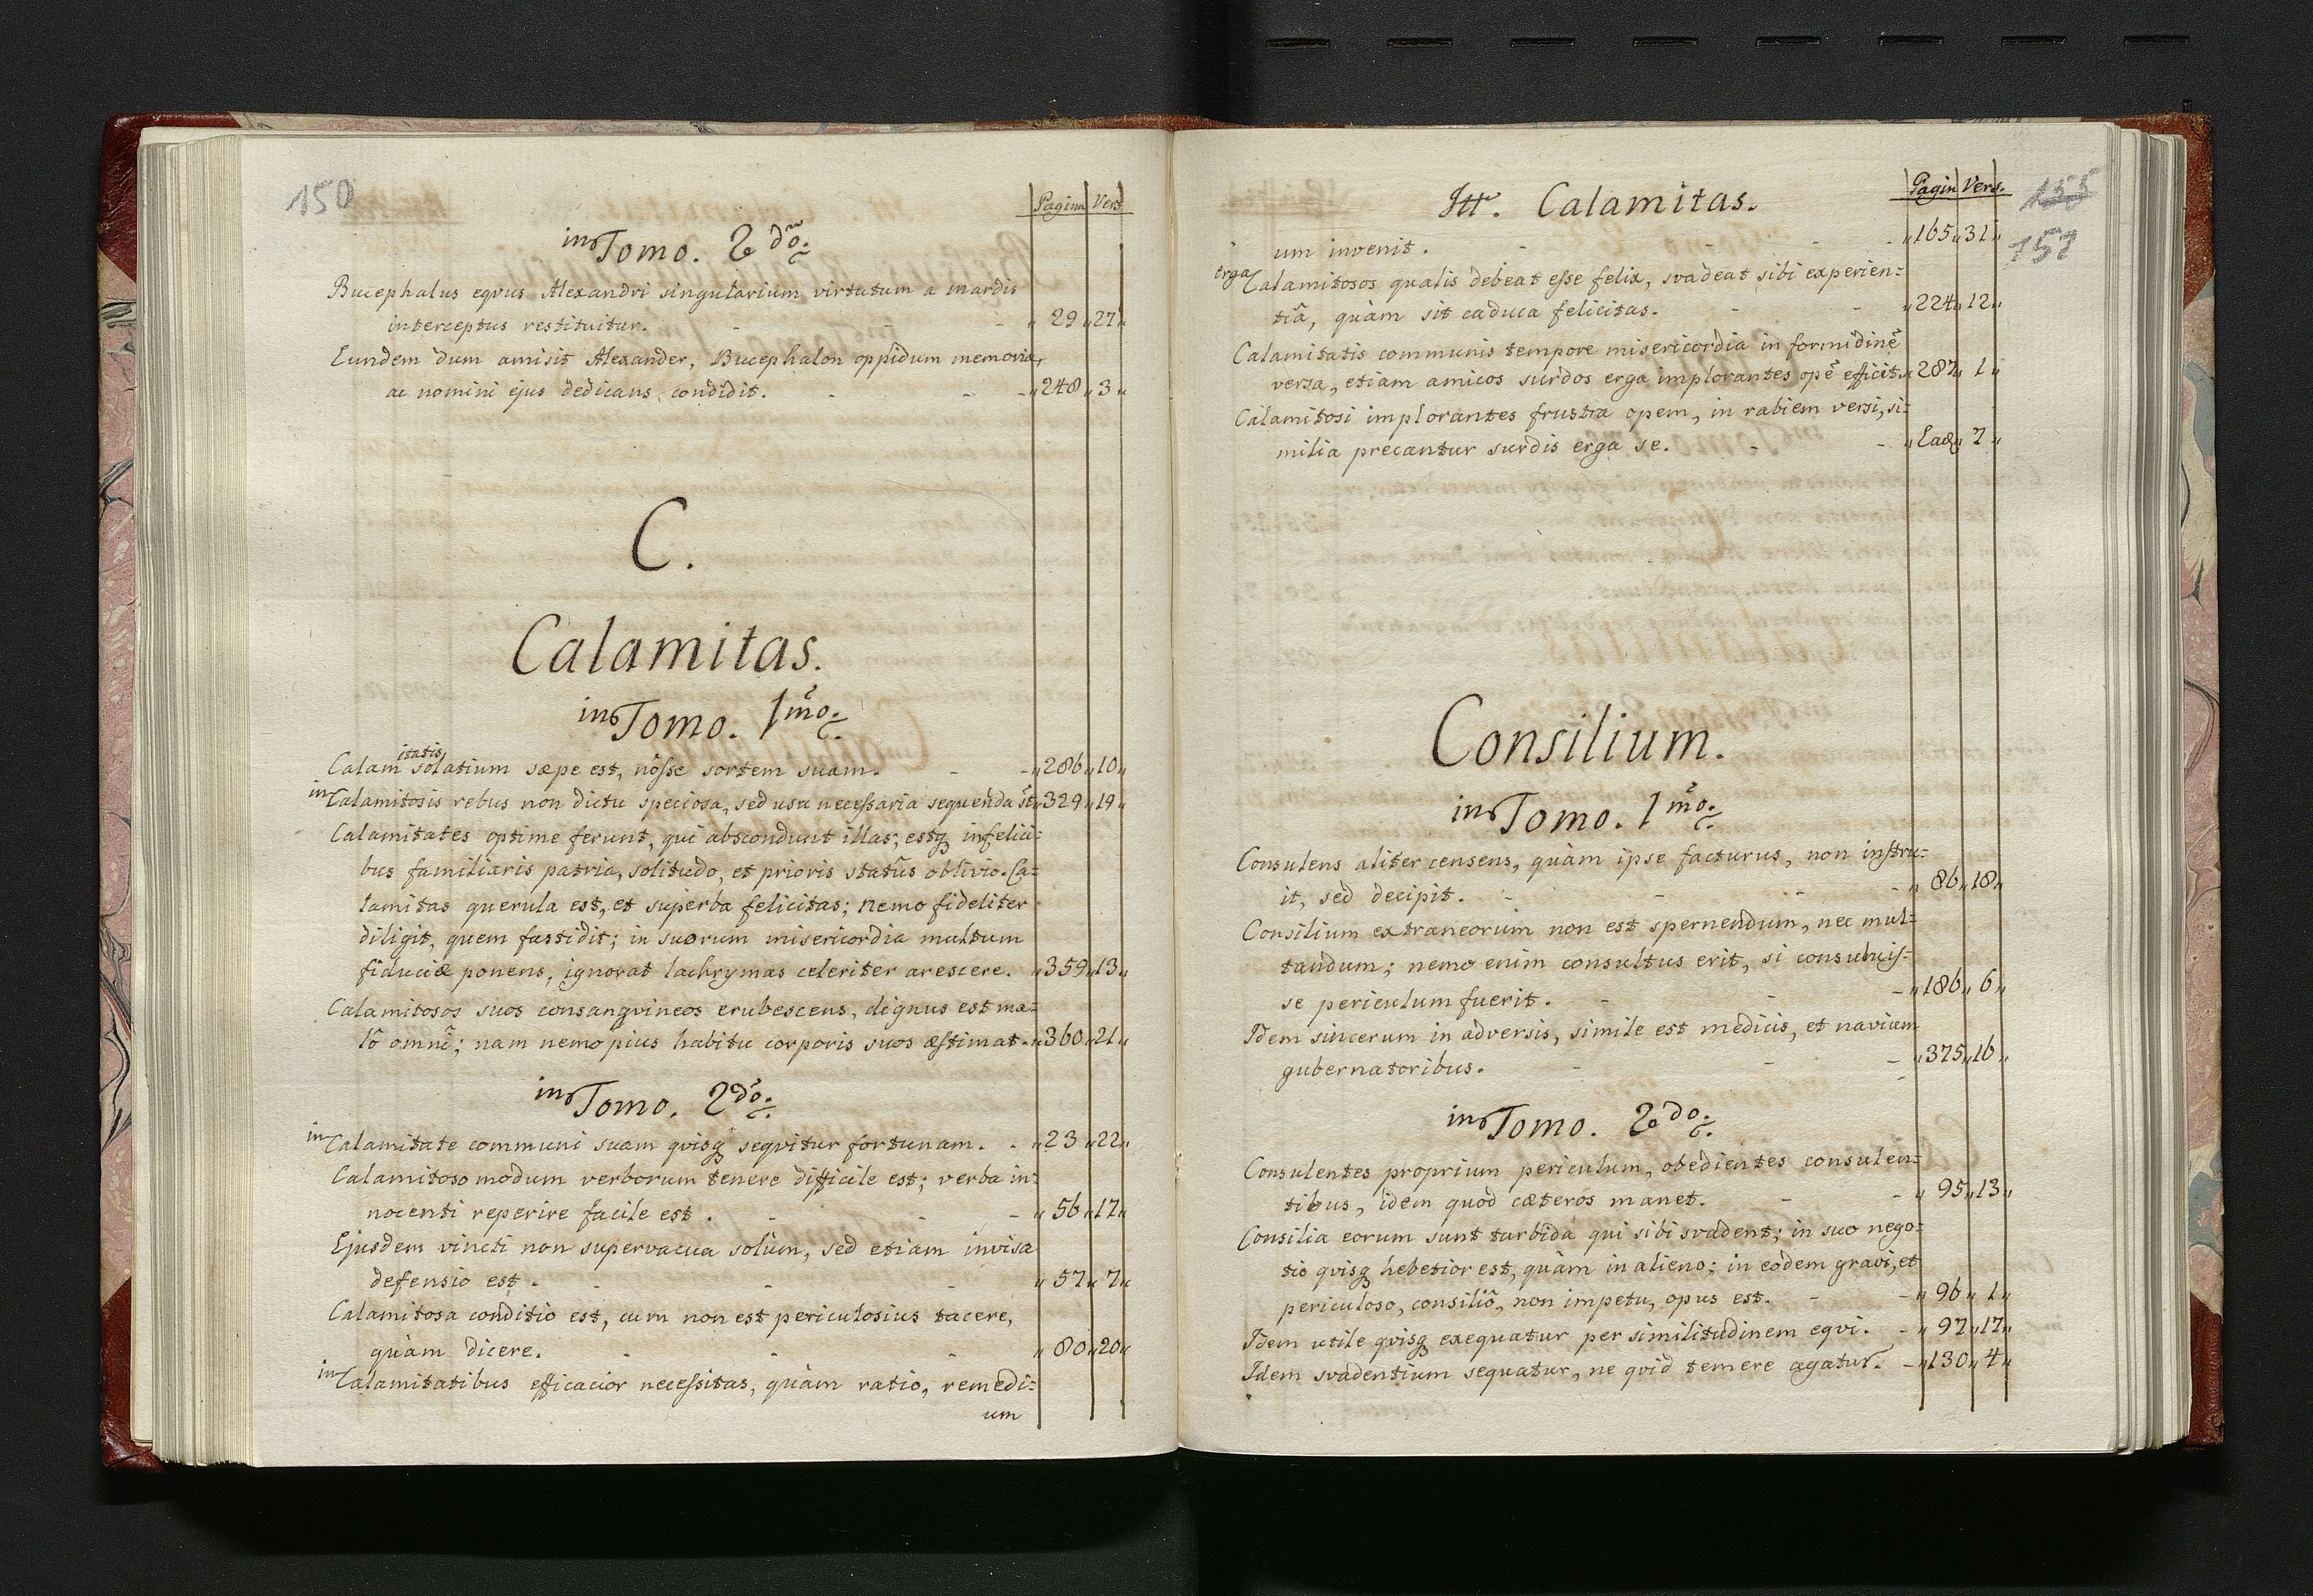 150
Pagina Vers
in Tomo. 2do.
Bucephalus eqvus Alexandri singularium virtutum a mardis
interceptus restituitur. - - - „ 29 „ 27 „
Eundem dum amisit Alexander, Bucephalon oppidum memoriæ,
ac nomini ejus dedicans, condidit. - - - „ 248 „ 3 „
C.
Calamitas.
in Tomo. 1mo.
Calamitatis solatium sæpe est, nôsse sortem suam. - - „ 286 „ 10 „
in Calamitosis rebus non dictu speciosa, sed usu necessaria sequenda st̃ „ 329 „ 19 „
Calamitates optime ferunt, qui abscondunt illas; estq₃ infelici:
bus familiaris patria, solitudo, et prioris statûs oblivio. Ca:
lamitas querula est, et superba felicitas; nemo fideliter
diligit, quem fastidit; in suorum misericordia multum
fiduciæ ponens, ignorat lachrymas celeriter arescere. „ 359 „ 13 „
Calamitosos suos consangvineos erubescens, dignus est ma:
lô omnî; nam nemo pius habitu corporis suos æstimat. „ 360 „ 21 „
in Tomo. 2do.
in Calamitate communi suam qvisq₃ seqvitur fortunam. - „ 23 „ 22 „
Calamitoso modum verborum tenere difficile est; verba in:
nocenti reperire facile est. - - - „ 56 „ 17 „
Ejusdem vincti non supervacua solùm, sed etiam invisa
defensio est. - - - „ 57 „ 7 „
Calamitosa conditio est, cum non est periculosius tacere,
quàm dicere. - - - „ 80 „ 20 „
in Calamitatibus efficacior necessitas, quàm ratio, remedi:
um
Itt. Calamitas.
Pagin Vers.
155
151
um invenit. - - - - „ 165 „ 31 „
erga Calamitosos qualis debeat esse felix, svadeat sibi experien:
tiâ, quàm sit caduca felicitas. - - „ 224 „ 12 „
Calamitatis communis tempore misericordia in formidinẽ
versa, etiam amicos surdos erga implorantes opẽ efficit. „ 287 „ 1 „
Calamitosi implorantes frustra opem, in rabiem versi, si:
milia precantur surdis erga se. - - „ Ead „ 7 „
Consilium.
in Tomo. 1mo.
Consulens aliter censens, quàm ipse facturus, non instru:
it, sed decipit. - - - - „ 86 „ 18 „
Consilium extraneorum non est spernendum, nec mul:
tandum; nemo enim consultus erit, si consuluis-
se periculum fuerit. - - - „ 186 „ 6 „
Idem sincerum in adversis, simile est medicis, et navium
gubernatoribus. - - - „ 375 „ 16 „
in Tomo. 2do.
Consulentes proprium periculum, obedientes consulen:
tibus, idem quod cæteros manet. - - „ 95 „ 13 „
Consilia eorum sunt turbida qui sibi svadent; in suo nego:
tio qvisq₃ hebetior est, quàm in alieno; in eodem gravi, et
periculoso, consiliô, non impetu, opus est. - - „ 96 „ 1 „
Idem utile qvisq₃ exequatur per similitudinem eqvi. - „ 97 „ 17 „
Idem svadentium sequatur, ne qvid temere agatur. - „ 130 „ 4 „